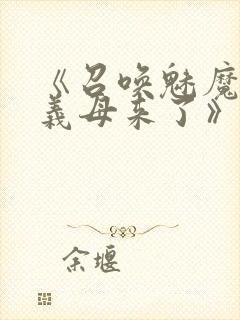 《召唤魅魔
義母来了》
余堰